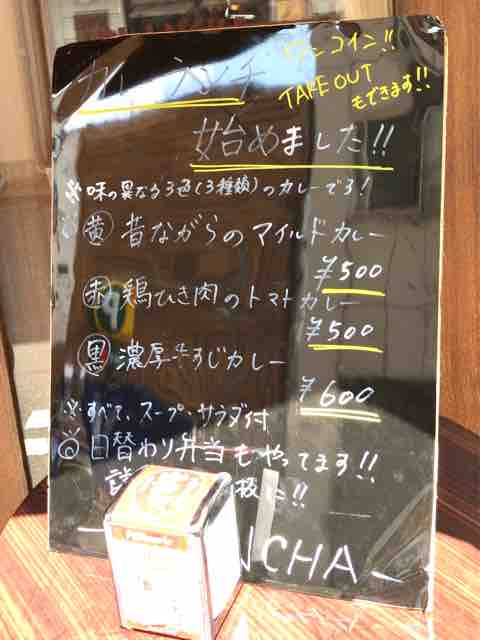 カレーランチ
ワンコイン!!
TAKE OUT
もできます!!
始めました!!
味の異なる3色(3種類)のカレーです!
黄 昔ながらのマイルドカレー
¥500
赤 鶏ひき肉のトマトカレー
¥500
黒 濃厚牛すじカレー
¥600
※すべて、スープ・サラダ付
◎日替わり弁当もやってます!!
NCHA